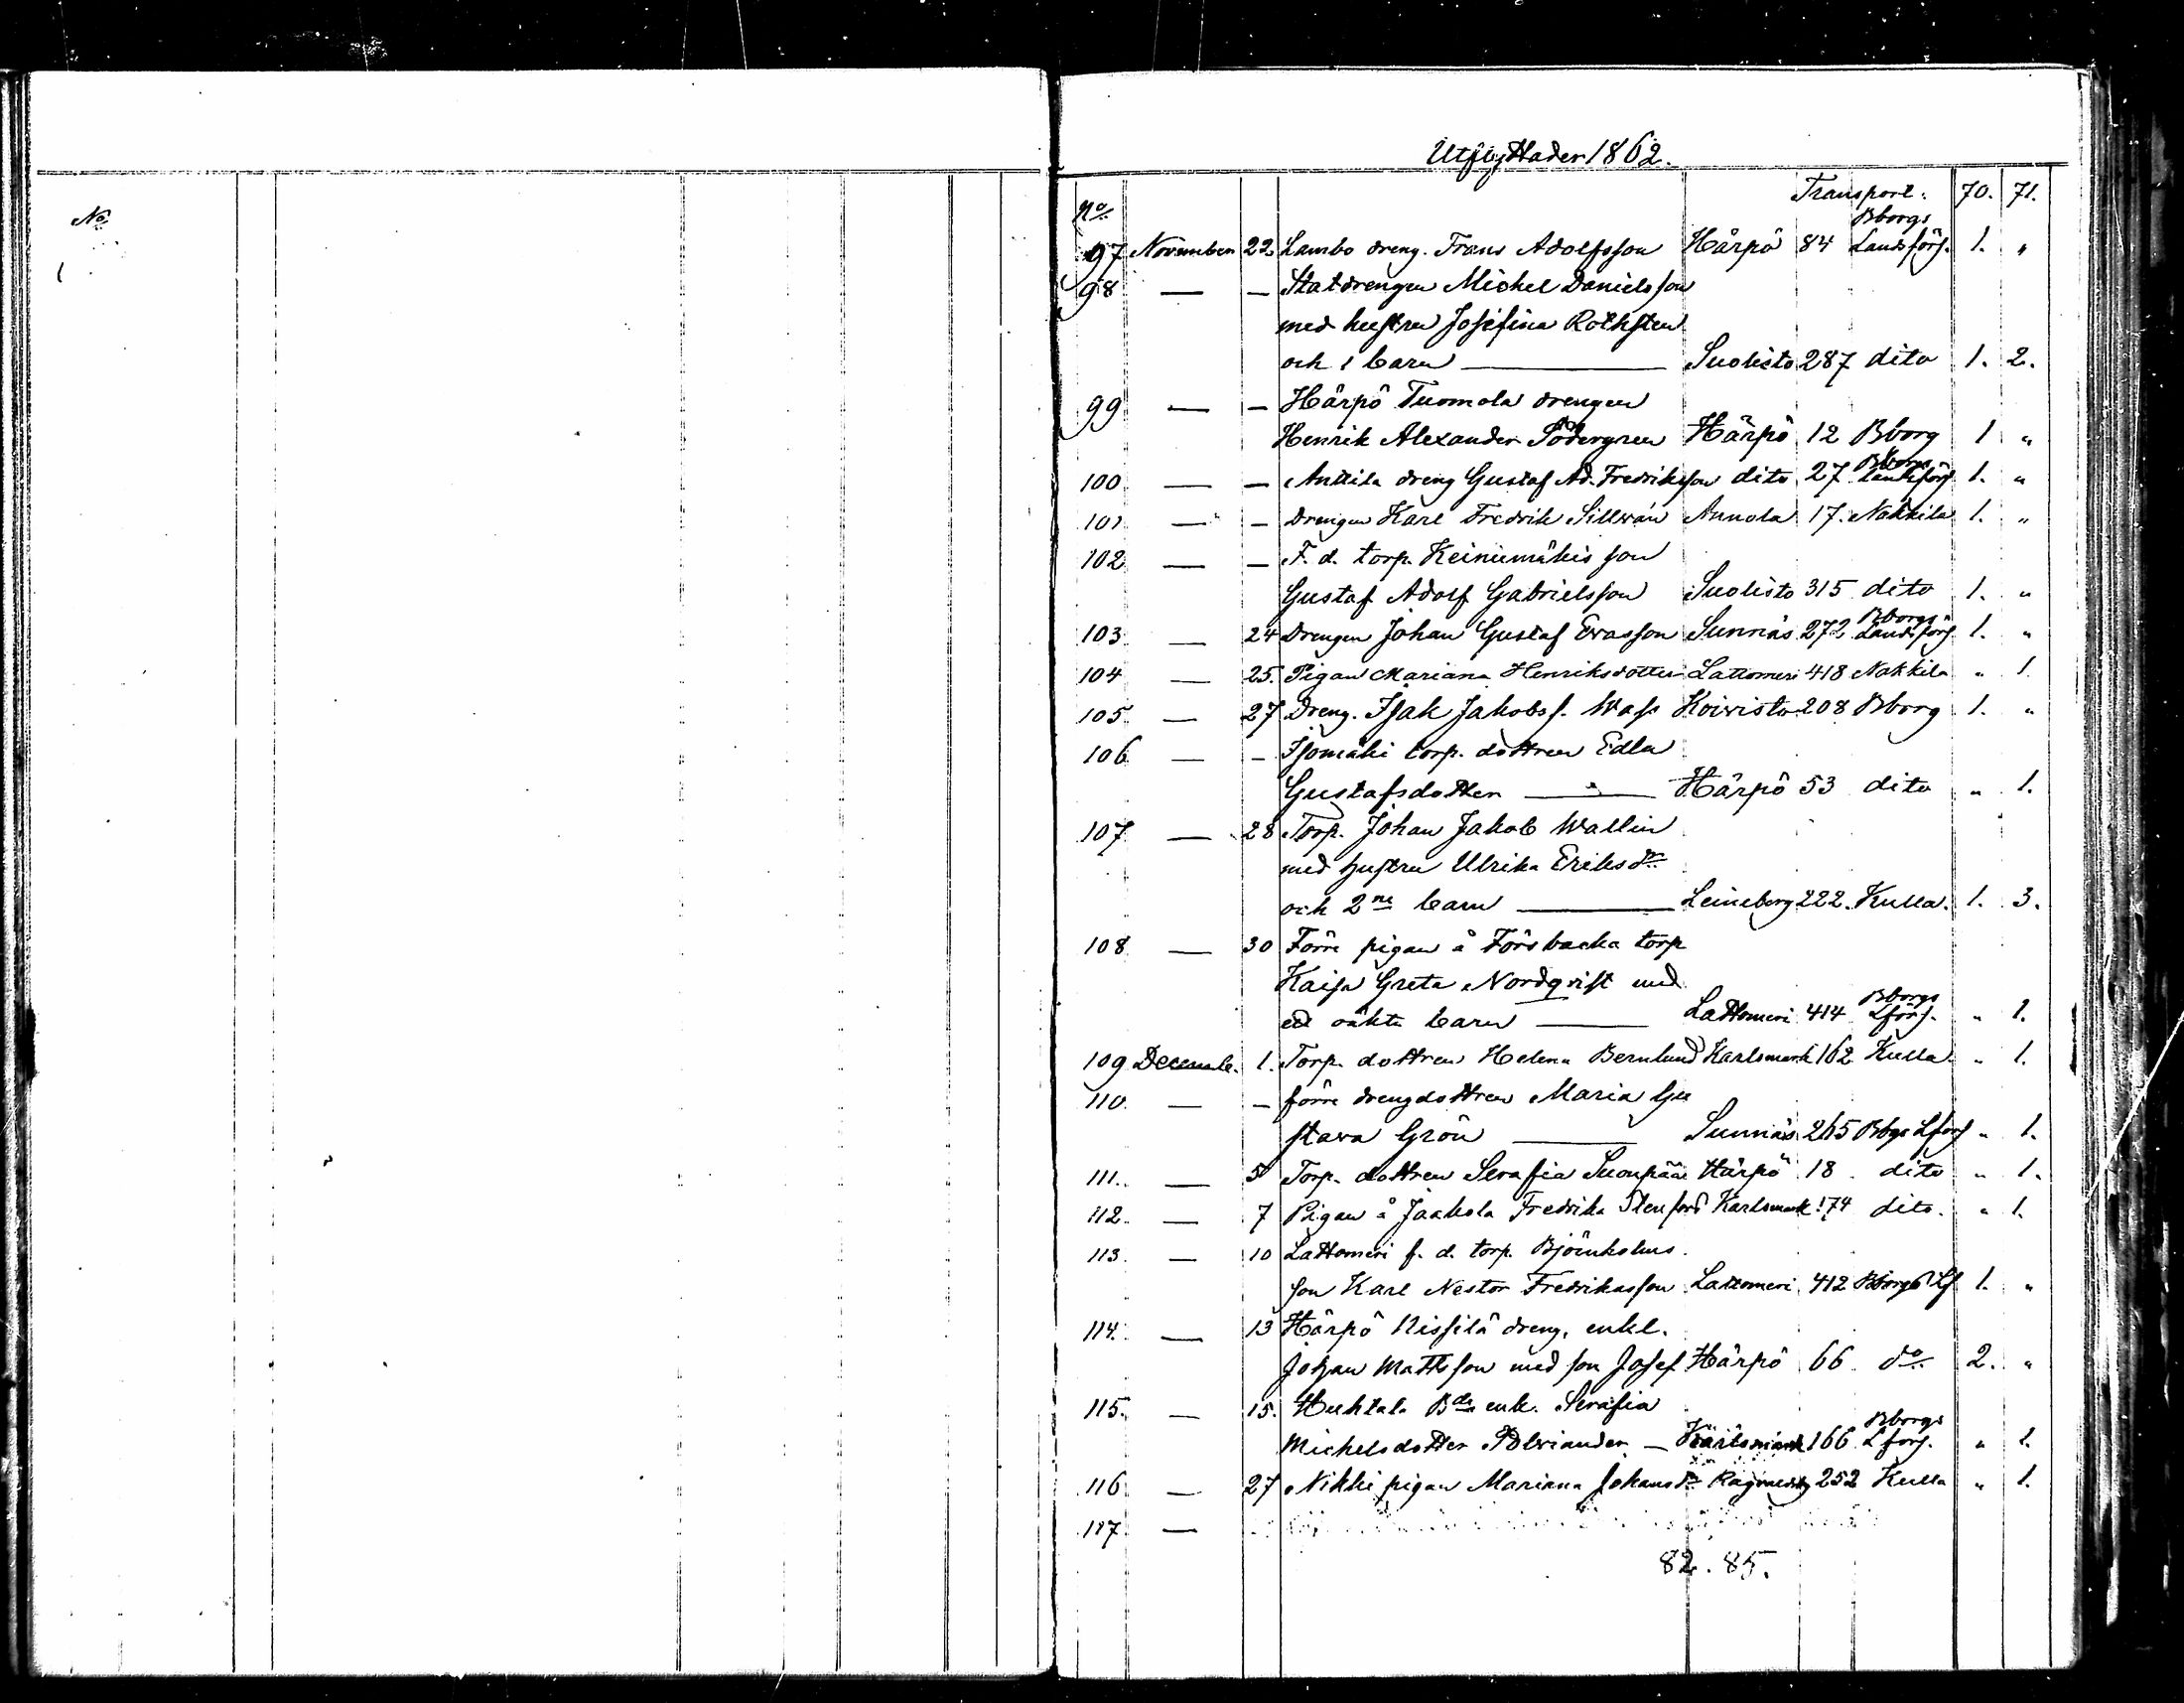 No
Utflyttader 1862.
No Transport. 70. 71.
97 November 22 Lambo dreng. Frans Adolfsson Härpö 84 Bborgs Landsförs. 1. "
98 — — Statdrengen Michel Danielsson
med hustru Josefina Rothsten
och 1 barn — Suolisto 287 dito 1. 2.
99 — — Härpö Tuomola drengen
Henrik Alexander Södergren Härpö 12 Bborg 1 "
100 — — Anttila dreng Gustaf Ad. Fredriksson dito 27 Bborgs Landsförs 1. "
101 — — Drengen Karl Fredrik Sillwan Annola 17. Nakkila 1. "
102 — — F. d. torp. Keinumäkis son
Gustaf Adolf Gabrielsson Suolisto 315 dito 1. "
103 — 24 Drengen Johan Gustaf Evasson Sunnäs 272 Bborgs Landsförs 1. "
104 — 25. Pigan Mariana Henriksdotter Lattomeri 418 Nakkila " 1.
105 — 27 Dreng. Isak Jakobss. Wass Koivisto 208 Bborg 1. "
106 — — Isomäki torp. dottren Edla
Gustafsdotter — Härpö 53 dito " 1.
107 — 28 Torp. Johan Jakob Wallin
med hustru Ulrika Eriksdr
och 2ne barn — Leineberg 222. Kulla. 1. 3.
108 — 30 Förre pigan å Forsbacka torp
Kaisa Greta Nordqvist med
ett oäkta barn — Lattomeri 414 Bborgs Lförs. " 1.
109 Decemb. 1. Torp. dottren Helena Bernlund Karlsmark 162 Kulla " 1.
110. — — förre drengdottren Maria Gu
stava Grön — Sunnäs 265 Bbgs Lförs " 1.
111. — 5 Torp. dottren Serafia Suonpää Härpö 18 dito " 1.
112. — 7 Pigan å Jaakola Fredrika Stenfors Karlsmark 174 dito. " 1.
113. — 10 Lattomeri f. d. torp. Björnkshus
son Karl Nestor Fredrikasson Lattomeri 412 Bborgs Lf 1. "
114. — 13 Härpö Nissilä dreng. enkl.
Johan Mattsson med son Josef Härpö 66 do 2. "
115. — 15. Huhtala Bde enk. Serafia
Michelsdotter Polviander — Karlsmark 166 Bborgs Lförs. " 1.
116 — 27 Nikki pigan Mariana Johansdr 252 Kulla " 1.
117. —
82. 85.